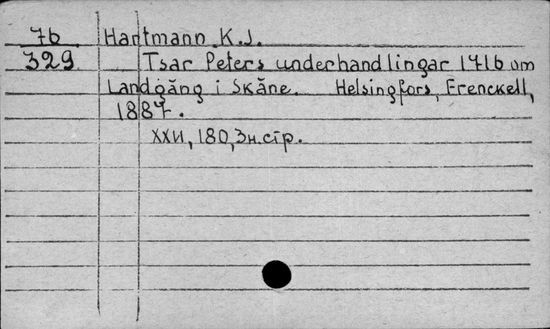 76 Hartmann K.J.
329 Tsar Peters underhandlingar 1716 om
Landgång i Skåne. Helsingfors, Frenckell,
1887.
XXII, 180, 3 н. стр.